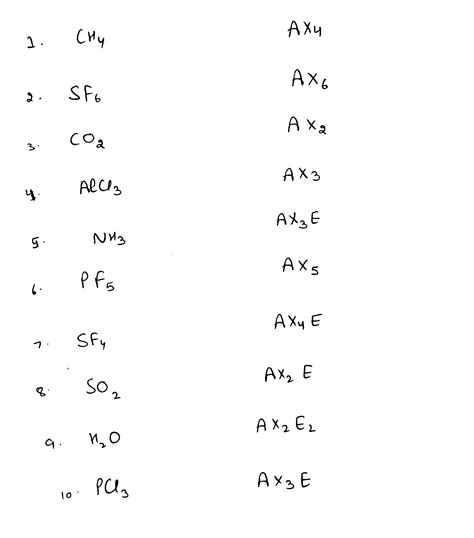 1. CH4 AX4
2. SF6 AX6
3. CO2 AX2
4. AlCl3 AX3
5. NH3 AX3E
6. PF5 AX5
7. SF4 AX4E
8. SO2 AX2E
9. H2O AX2E2
10. PCl3 AX3E